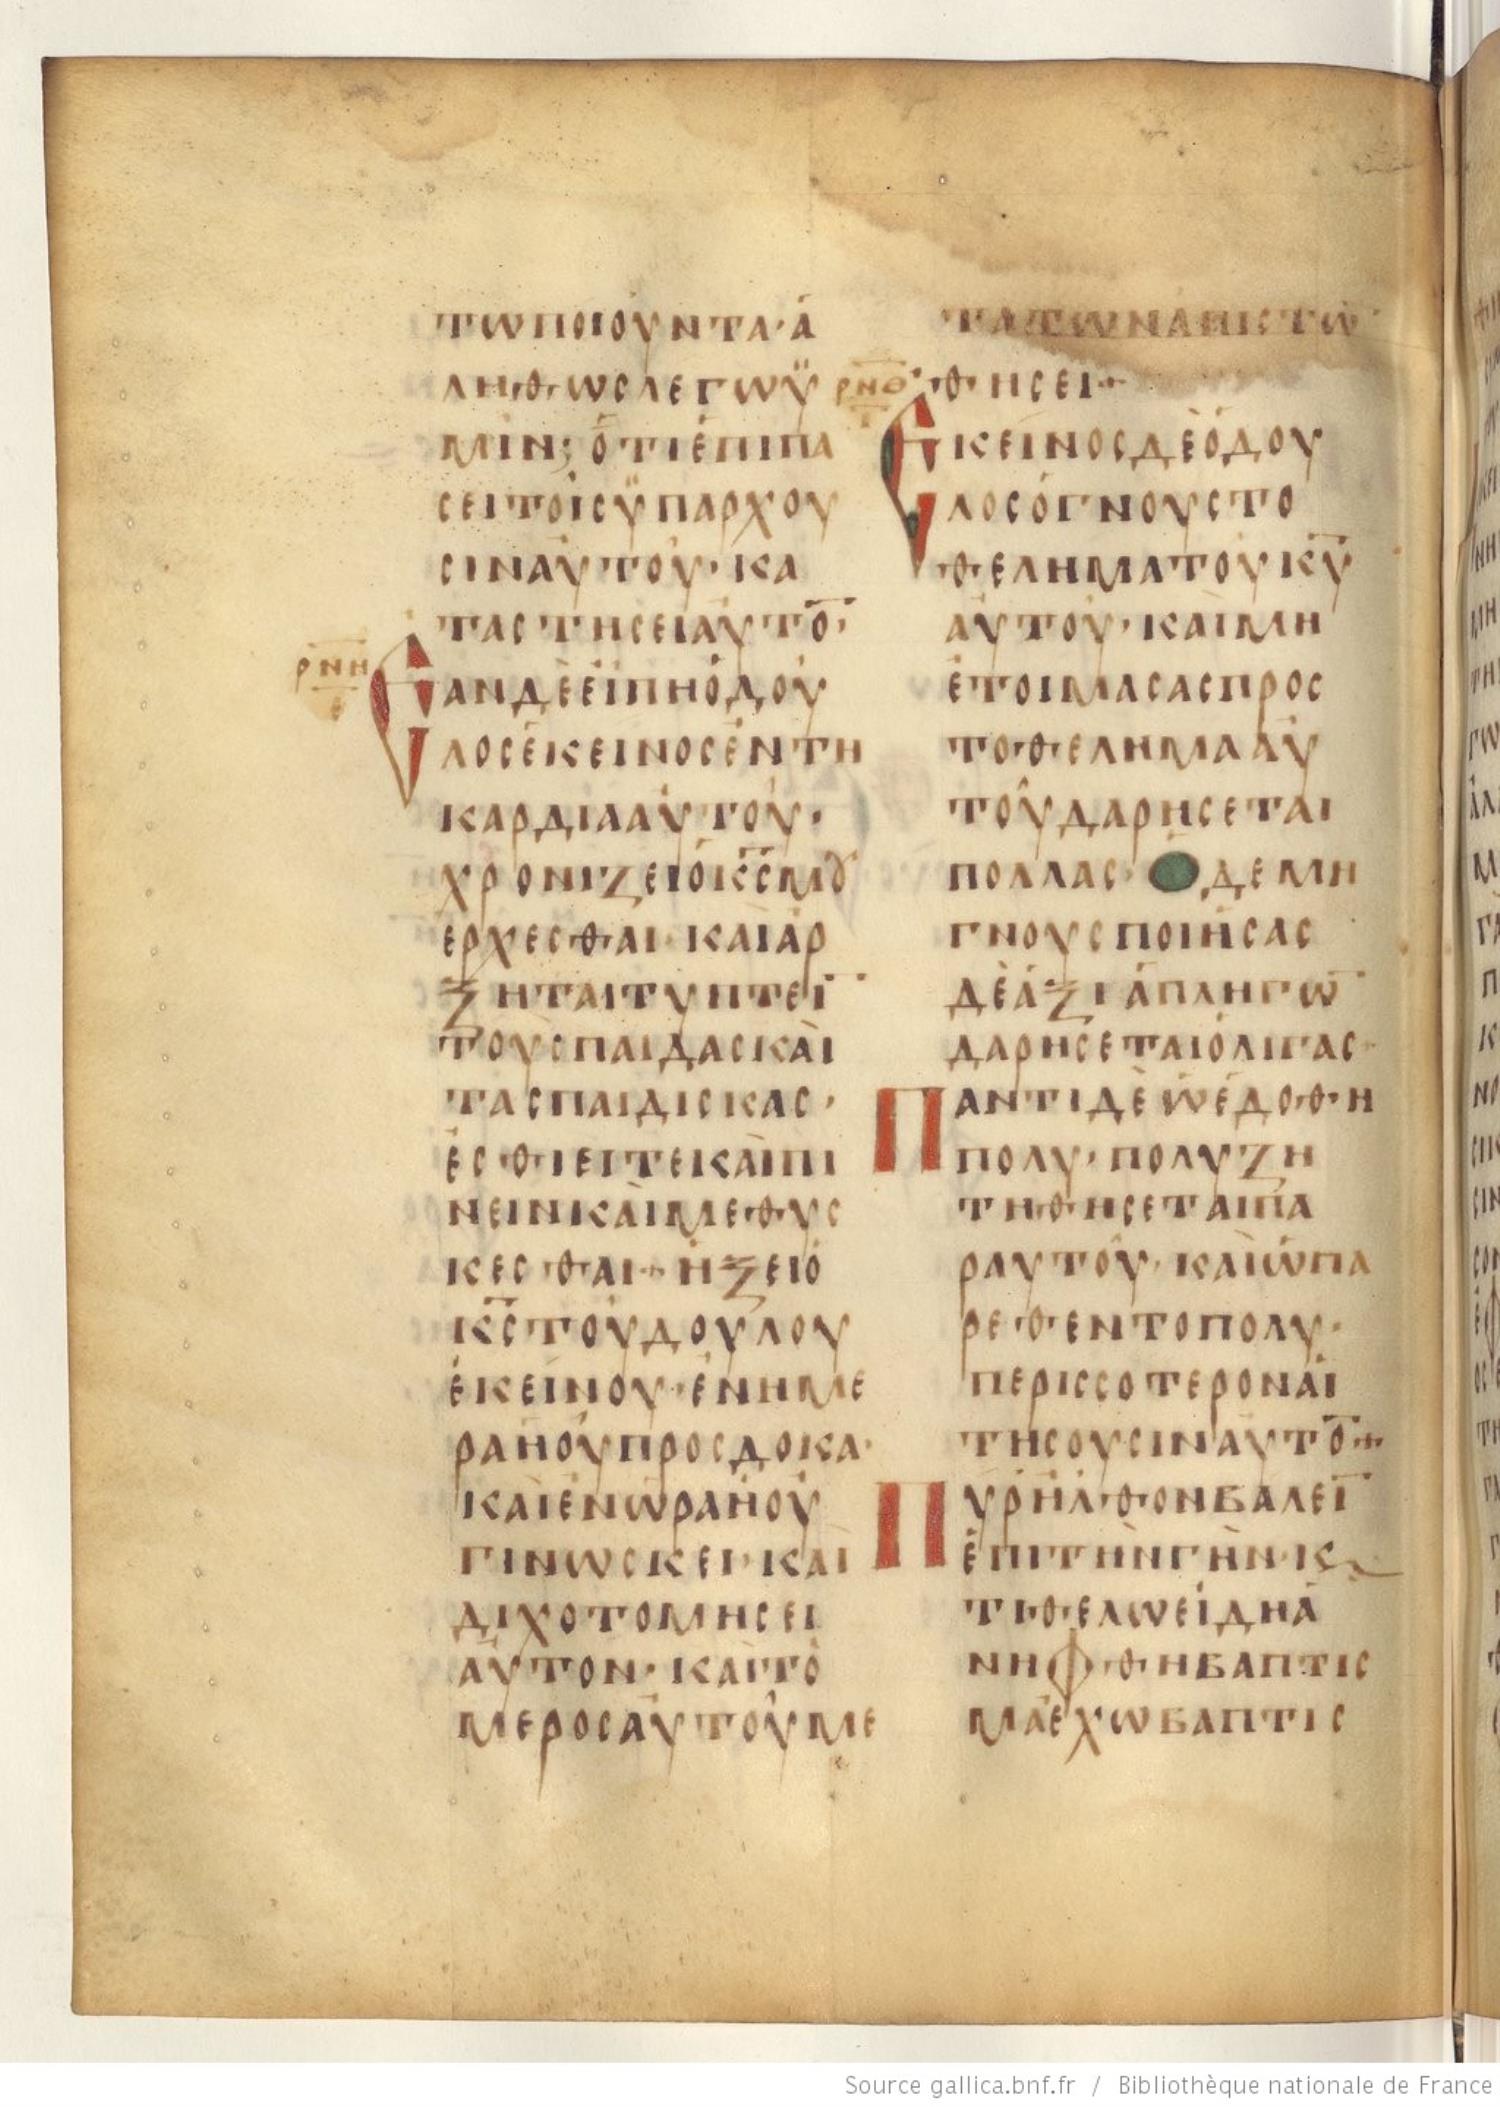 ΤΩΠΟΙΟΥΝΤΑ·Ἀ
ΛΗΘΩΣΛΕΓΩΫ
ΜΙΝ; ὉΤΙἘΠΙΠΑ
ΣΕΙΤΟΙΣΫΠΑΡΧΟΥ
ΣΙΝΑΥΤΟΥ· ΚΑ
ΤΑΣΤΗΣΕΙΑΥΤΟ̅·
ΡΝΗ
Ε
ΕΑΝΔΕΕΙΠΗὉΔΟΥ
ΛΟΣΕΚΕΙΝΟΣΕΝΤΗ
ΚΑΡΔΙΑΑΥΤΟΥ·
ΧΡΟΝΙΖΕΙὉΚ̅Σ̅ΜȢ
ΕΡΧΕΣΘΑΙ· ΚΑΙΑΡ
ΞΗΤΑΙΤΥΠΤΕΙ̅
ΤΟΥΣΠΑΙΔΑΣΚΑΙ
ΤΑΣΠΑΙΔΙΣΚΑΣ·
ΕΣΘΙΕΙΤΕΚΑΙΠΙ
ΝΕΙΝΚΑΙΜΕΘΥΣ
ΚΕΣΘΑΙ+ ΗΞΕΙὉ
Κ̅Σ̅ΤΟΥΔΟΥΛΟΥ
ΕΚΕΙΝΟΥ·ΕΝΗΜΕ
ΡΑΗΟΥΠΡΟΣΔΟΚΑ·
ΚΑΙΕΝΩΡΑΗΟΥ
ΓΙΝΩΣΚΕΙ· ΚΑΙ
ΔΙΧΟΤΟΜΗΣΕΙ
ΑΥΤΟΝ· ΚΑΙΤΟ
ΜΕΡΟΣΑΥΤΟΥΜΕ
ΤΑΤΩΝΑΠΙΣΤΩ̅
ΘΗΣΕΙ+
ΡΝΘ
ΕΚΕΙΝΟΣΔΕὉΔΟΥ
ΛΟΣὉΓΝΟΥΣΤΟ
ΘΕΛΗΜΑΤΟΥΚ̅Υ̅
ΑΥΤΟΥ· ΚΑΙΜΗ
ΕΤΟΙΜΑΣΑΣΠΡΟΣ
ΤΟΘΕΛΗΜΑΑΥ
ΤΟΥΔΑΡΗΣΕΤΑΙ
ΠΟΛΛΑΣ· ΟΔΕΜΗ
ΓΝΟΥΣΠΟΙΗΣΑΣ
ΔΕΑΞΙΑΠΛΗΓΩ̅
ΔΑΡΗΣΕΤΑΙΟΛΙΓΑΣ·
ΠΑΝΤΙΔΕΩΕΔΟΘΗ
ΠΟΛΥ· ΠΟΛΥΖΗ
ΤΗΘΗΣΕΤΑΙΠΑ
ΡΑΥΤΟΥ· ΚΑΙΩΠΑ
ΡΕΘΕΝΤΟΠΟΛΥ·
ΠΕΡΙΣΣΟΤΕΡΟΝΑΙ
ΤΗΣΟΥΣΙΝΑΥΤΟ̅+
ΠΥΡΗΛΘΟΝΒΑΛΕΙ̅
ΕΠΙΤΗΝΓΗΝ· Κ
ΤΙΘΕΛΩΕΙΔΗΑ
ΝΗΦΘΗΒΑΠΤΙΣ
ΜΑΕΧΩΒΑΠΤΙΣ
Source gallica.bnf.fr / Bibliothèque nationale de France